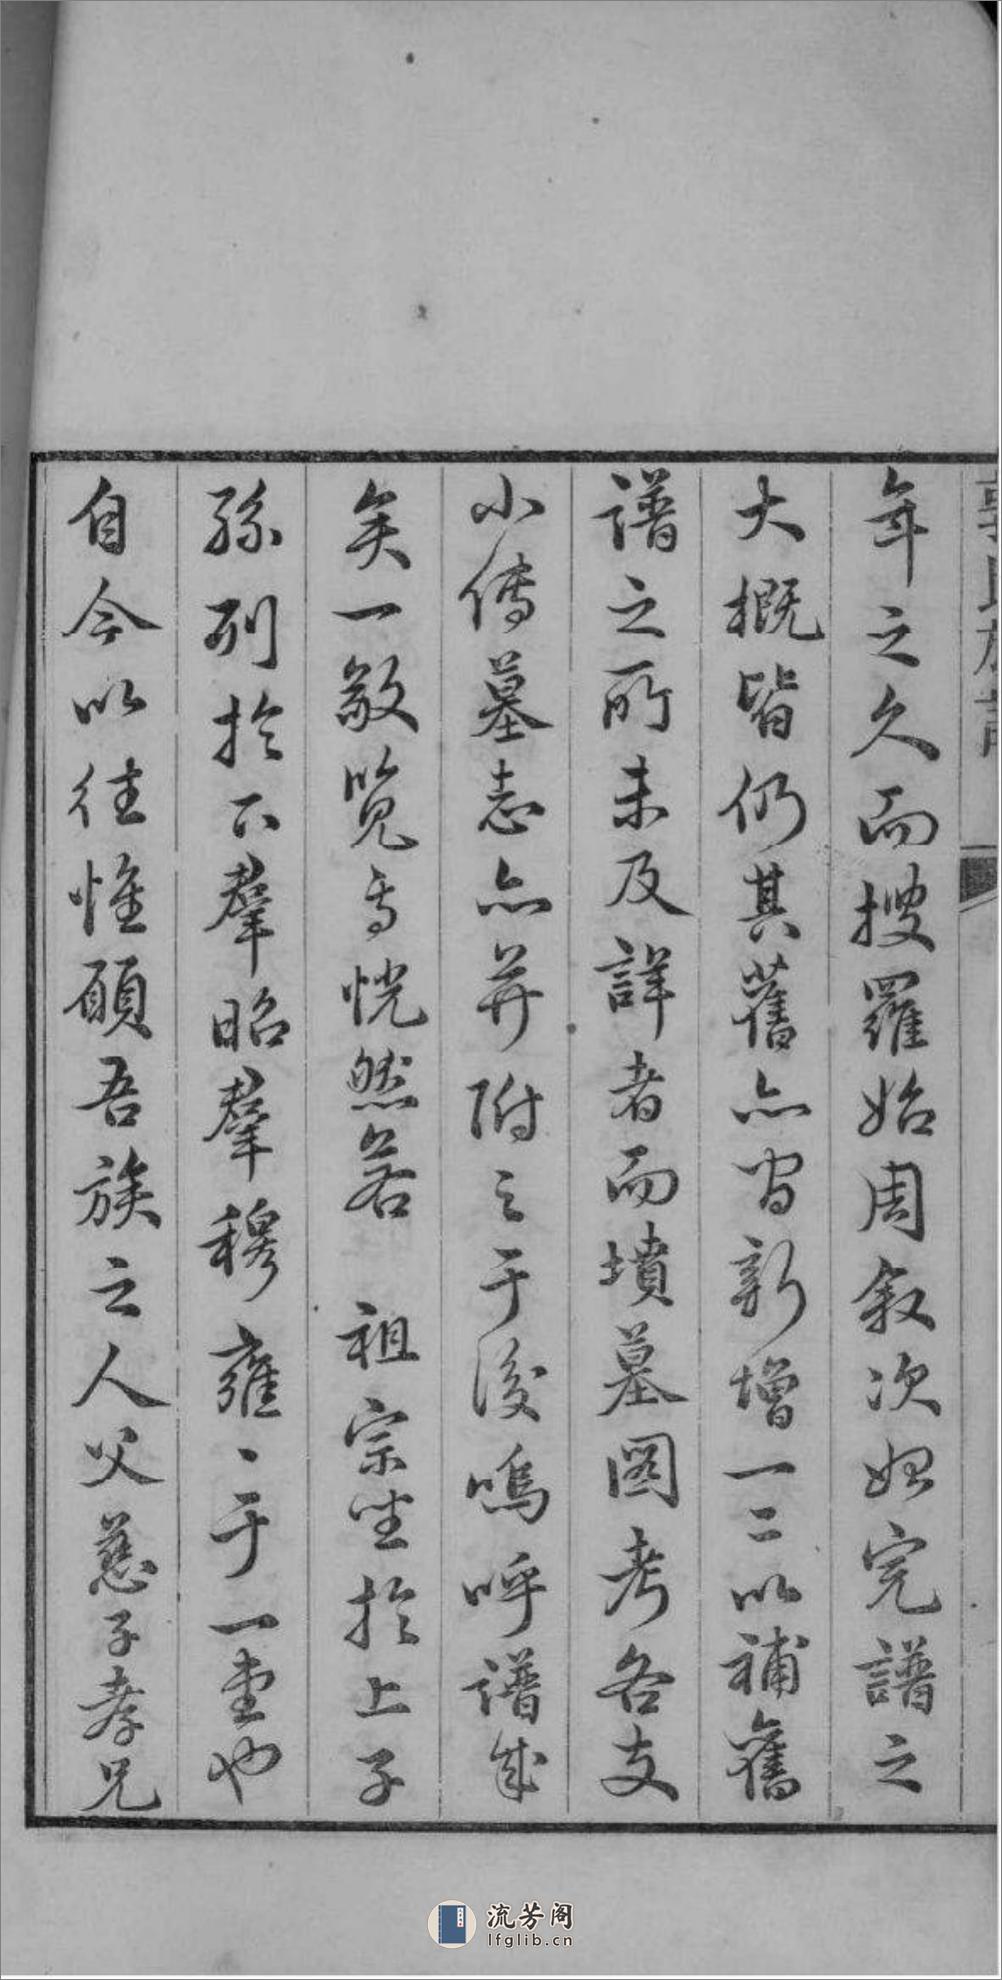 年之久而搜羅始周敘次始完譜之
大概皆仍其舊亦間新增一二以補舊
譜之所未及詳者而墳墓圖考各支
小傳墓志亦并附之于後嗚呼譜成
矣一敬覽焉恍然若 祖宗坐於上子
孫列於下羣昭羣穆雍、于一堂也
自今以往惟願吾族之人父慈子孝兄
流芳阁
lfglib.cn